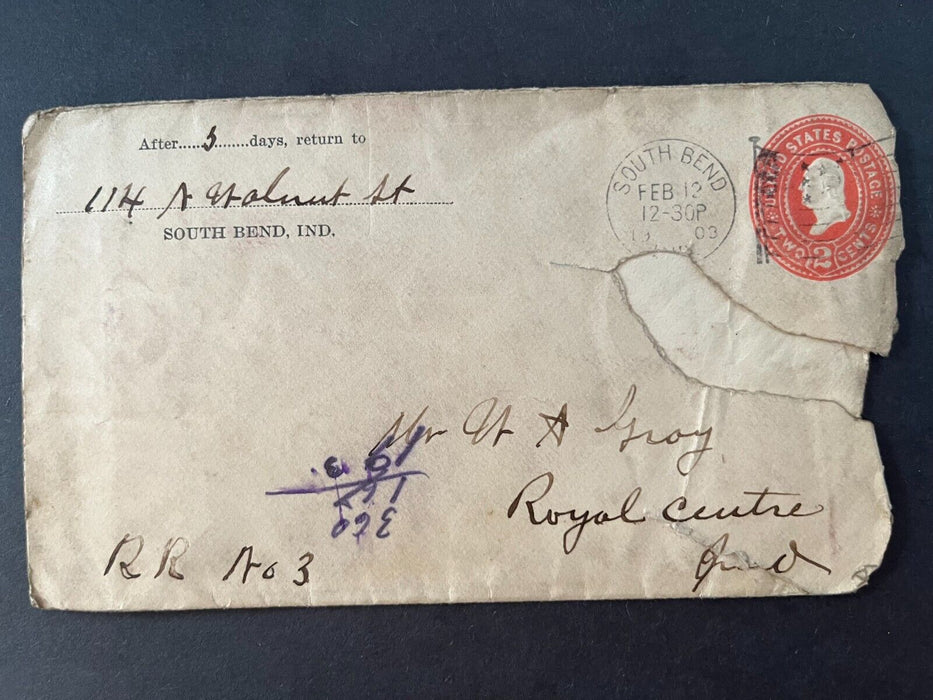 After.....5........days, return to
114 N Walnut St
SOUTH BEND, IND.
SOUTH BEND
FEB 12
12-30P
03
UNITED STATES POSTAGE
TWO 2 CENTS
Mr W A Gray
Royal Centre
Ind
RR No 3
360